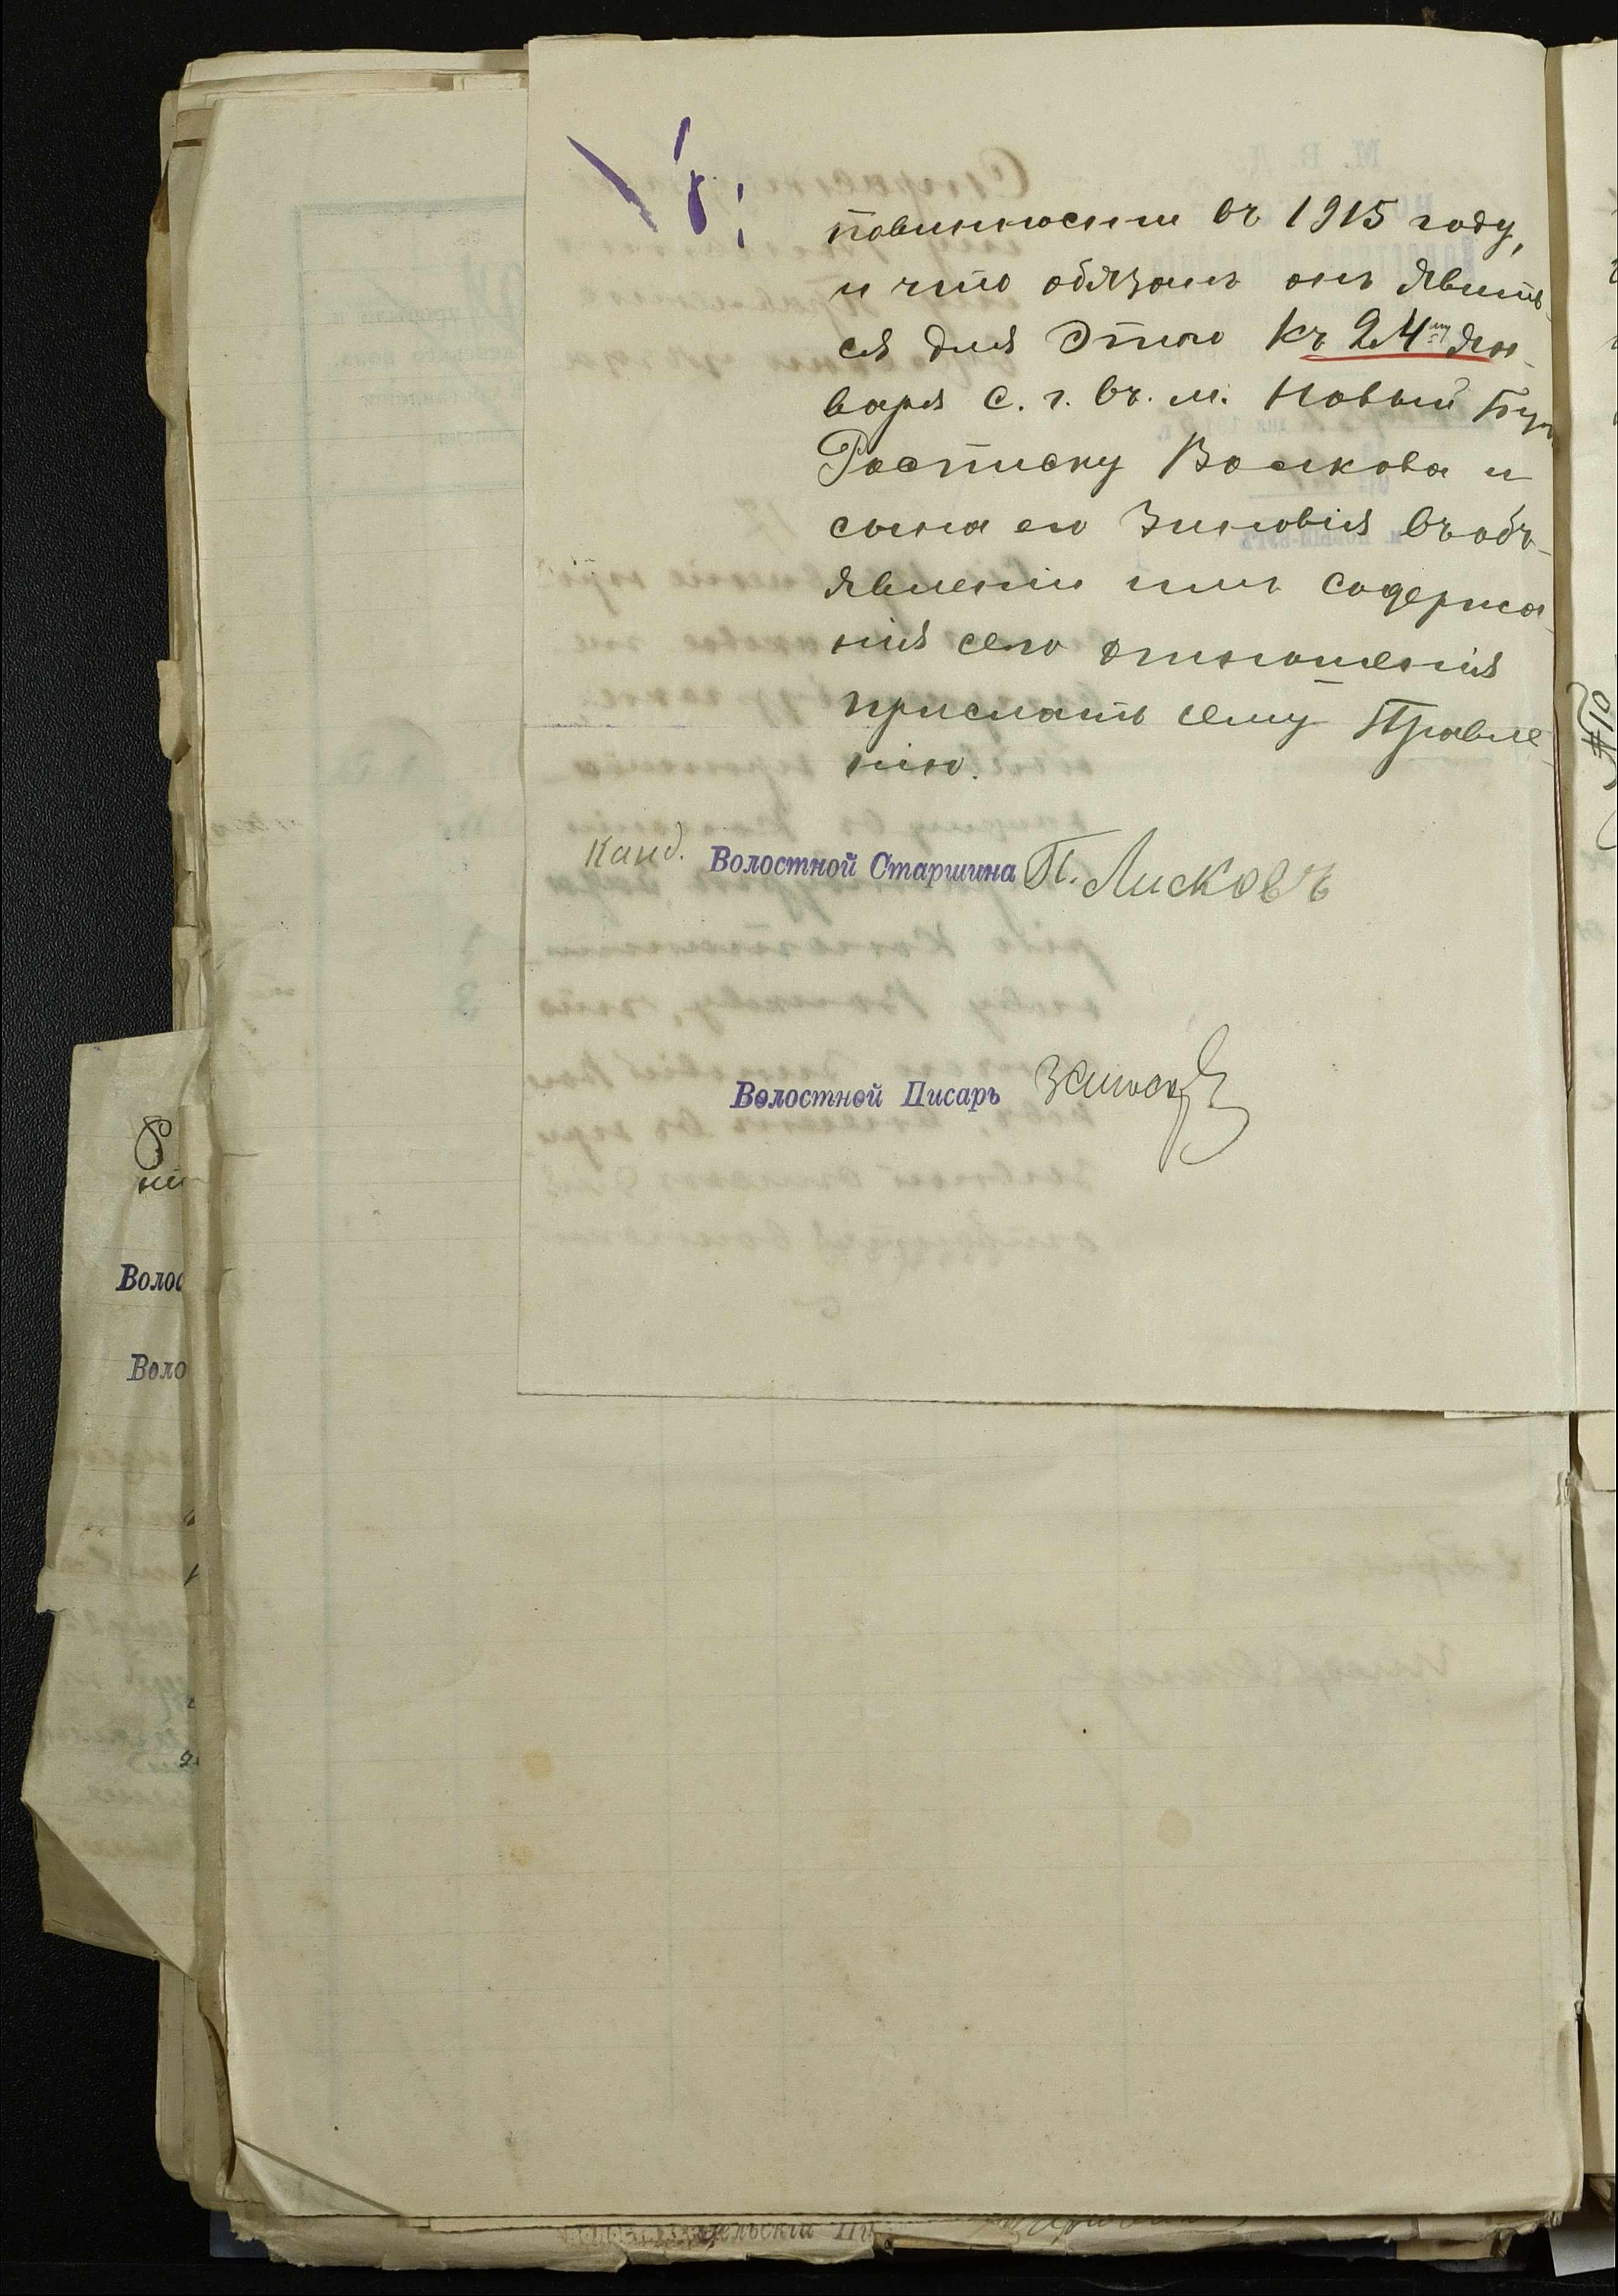 повинности въ 1915 году,
и что обязанъ онъ явить-
ся для этого къ 24му Ян-
варя с. г. въ м. Новый Буг
Росписку Волкова и
сына его Зиновія въ объ-
явленіи имъ содержа-
нія сего отношенія
прислать сему Правле-
нію.
Канд. Волостной Старшина П. Лисковъ
Волостной Писарь
ні
Волос
Воло